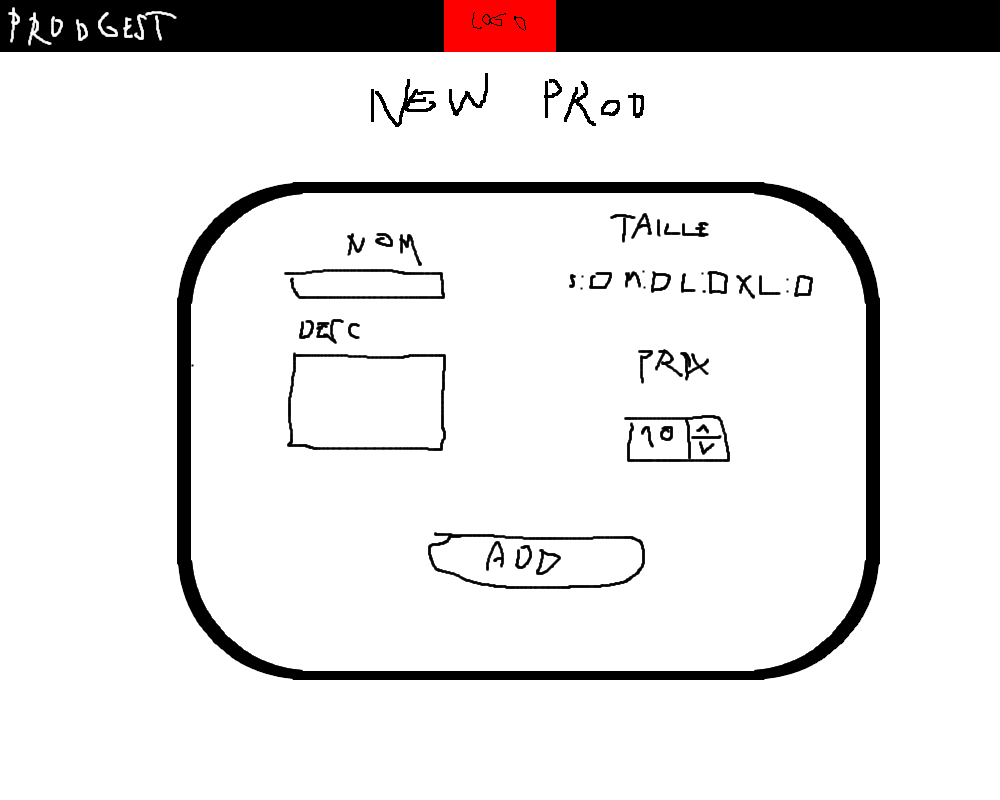 PRODGEST
LOGO
NEW PROD
NOM
TAILLE
S: M: L: XL:
DESC
PRIX
10
ADD